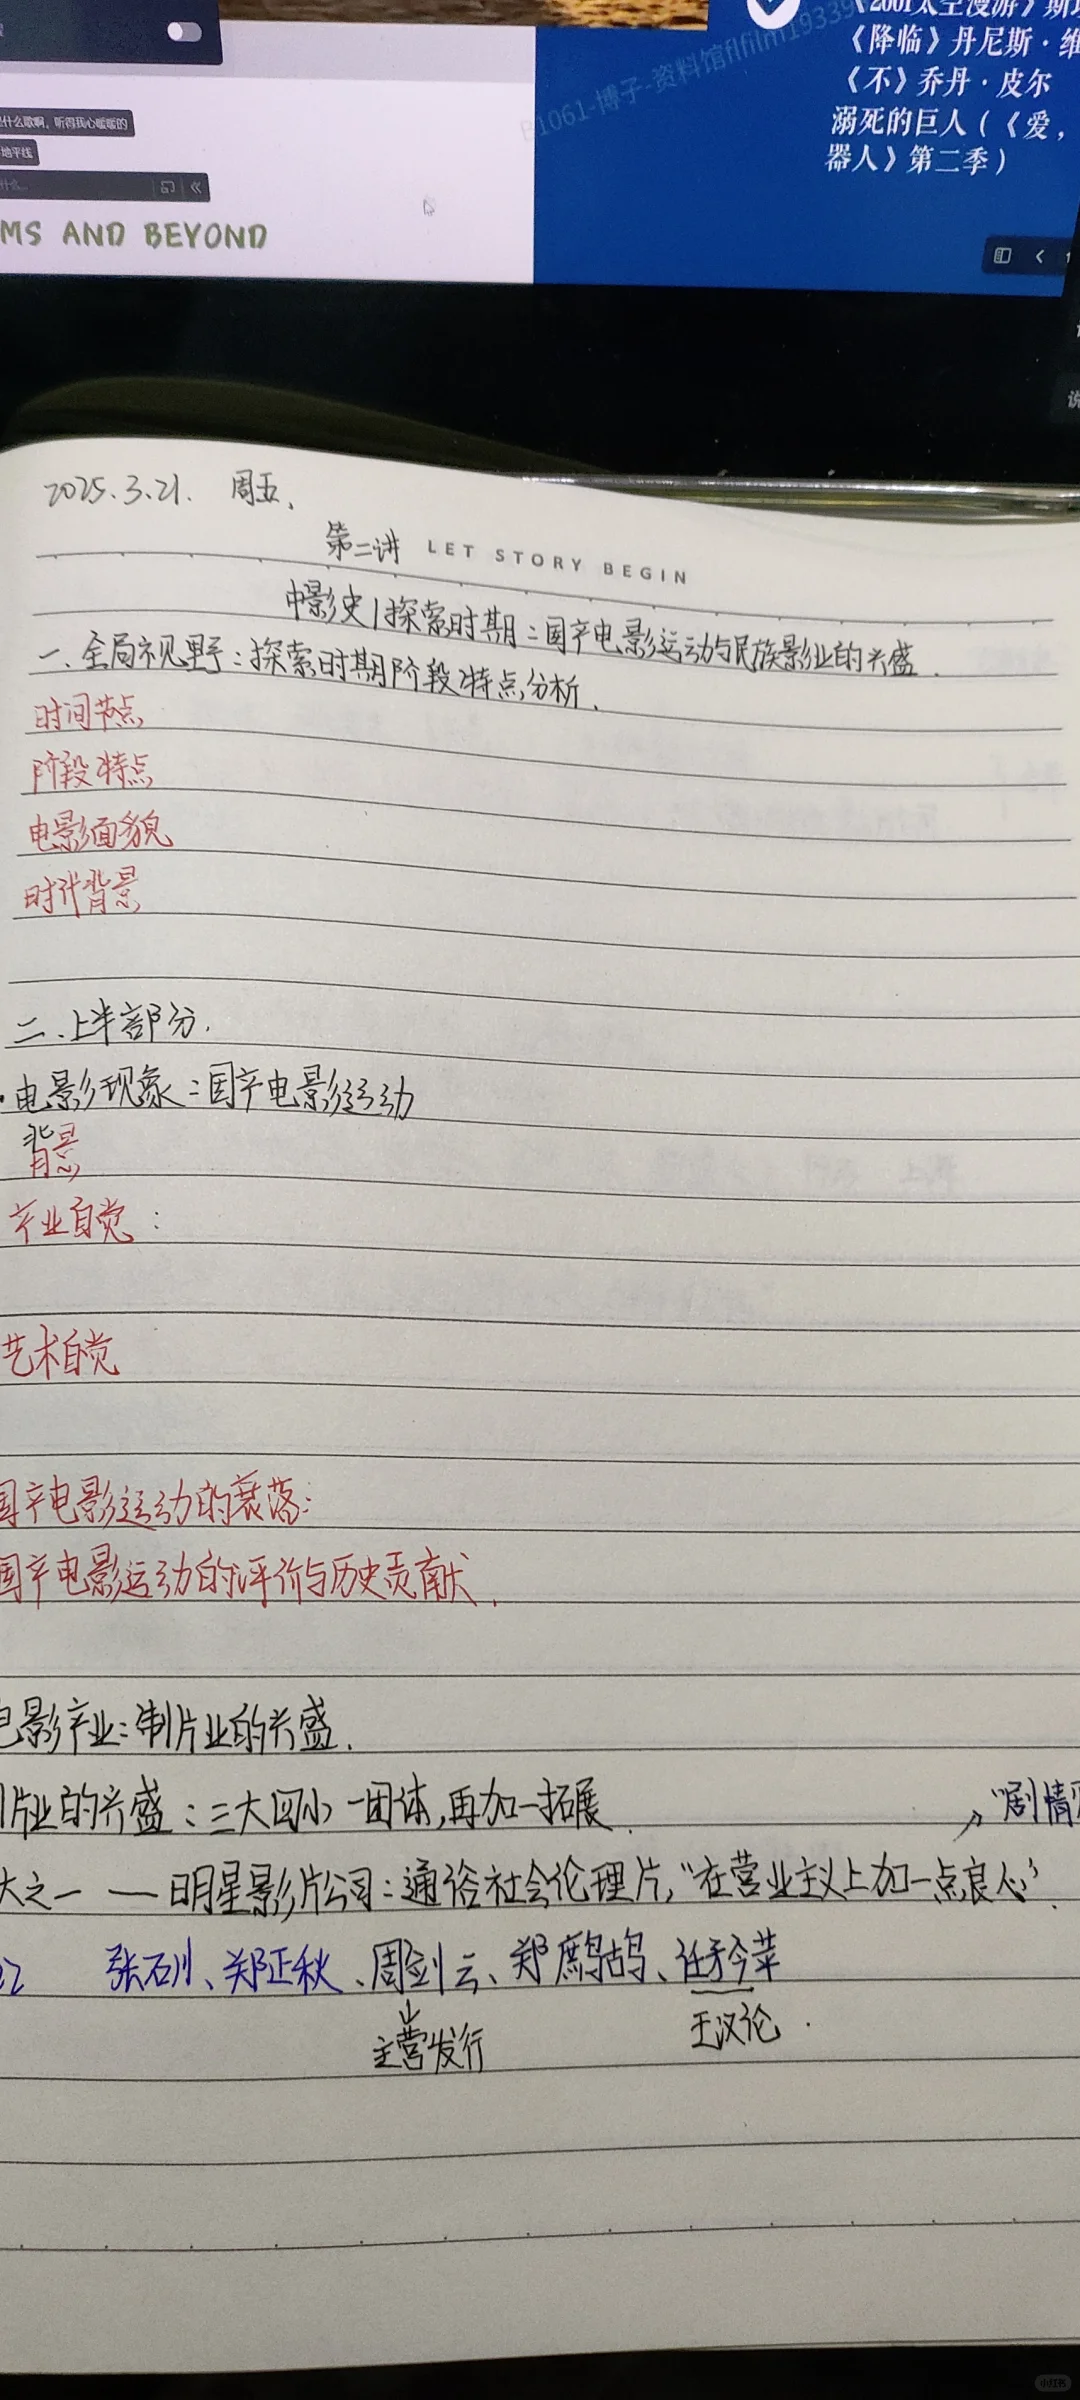 《2001太空漫游》斯
《降临》丹尼斯·维
《不》乔丹·皮尔
溺死的巨人（《爱，
器人》第二季）
B1061-博子-资料馆flfilm19339
什么歌啊，听得我心暖暖的
地平线
什么...
MS AND BEYOND
2025.3.21. 周五.
第二讲 LET STORY BEGIN
中影史|探索时期:国产电影运动与民族影业的兴盛.
一、全局视野:探索时期阶段特点分析.
时间节点
阶段特点
电影面貌
时代背景
二、上半部分.
·电影现象:国产电影运动
背景
产业自觉:
艺术自觉
国产电影运动的衰落:
国产电影运动的评价与历史贡献.
电影产业:制片业的兴盛.
片业的兴盛:三大四小一团体,再加一拓展.
"剧情
大之一——明星影片公司:通俗社会伦理片,"在营业主义上加一点良心".
22 张石川、郑正秋、周剑云、郑鹧鸪、任矜苹
主营发行 王汉伦.
小红书